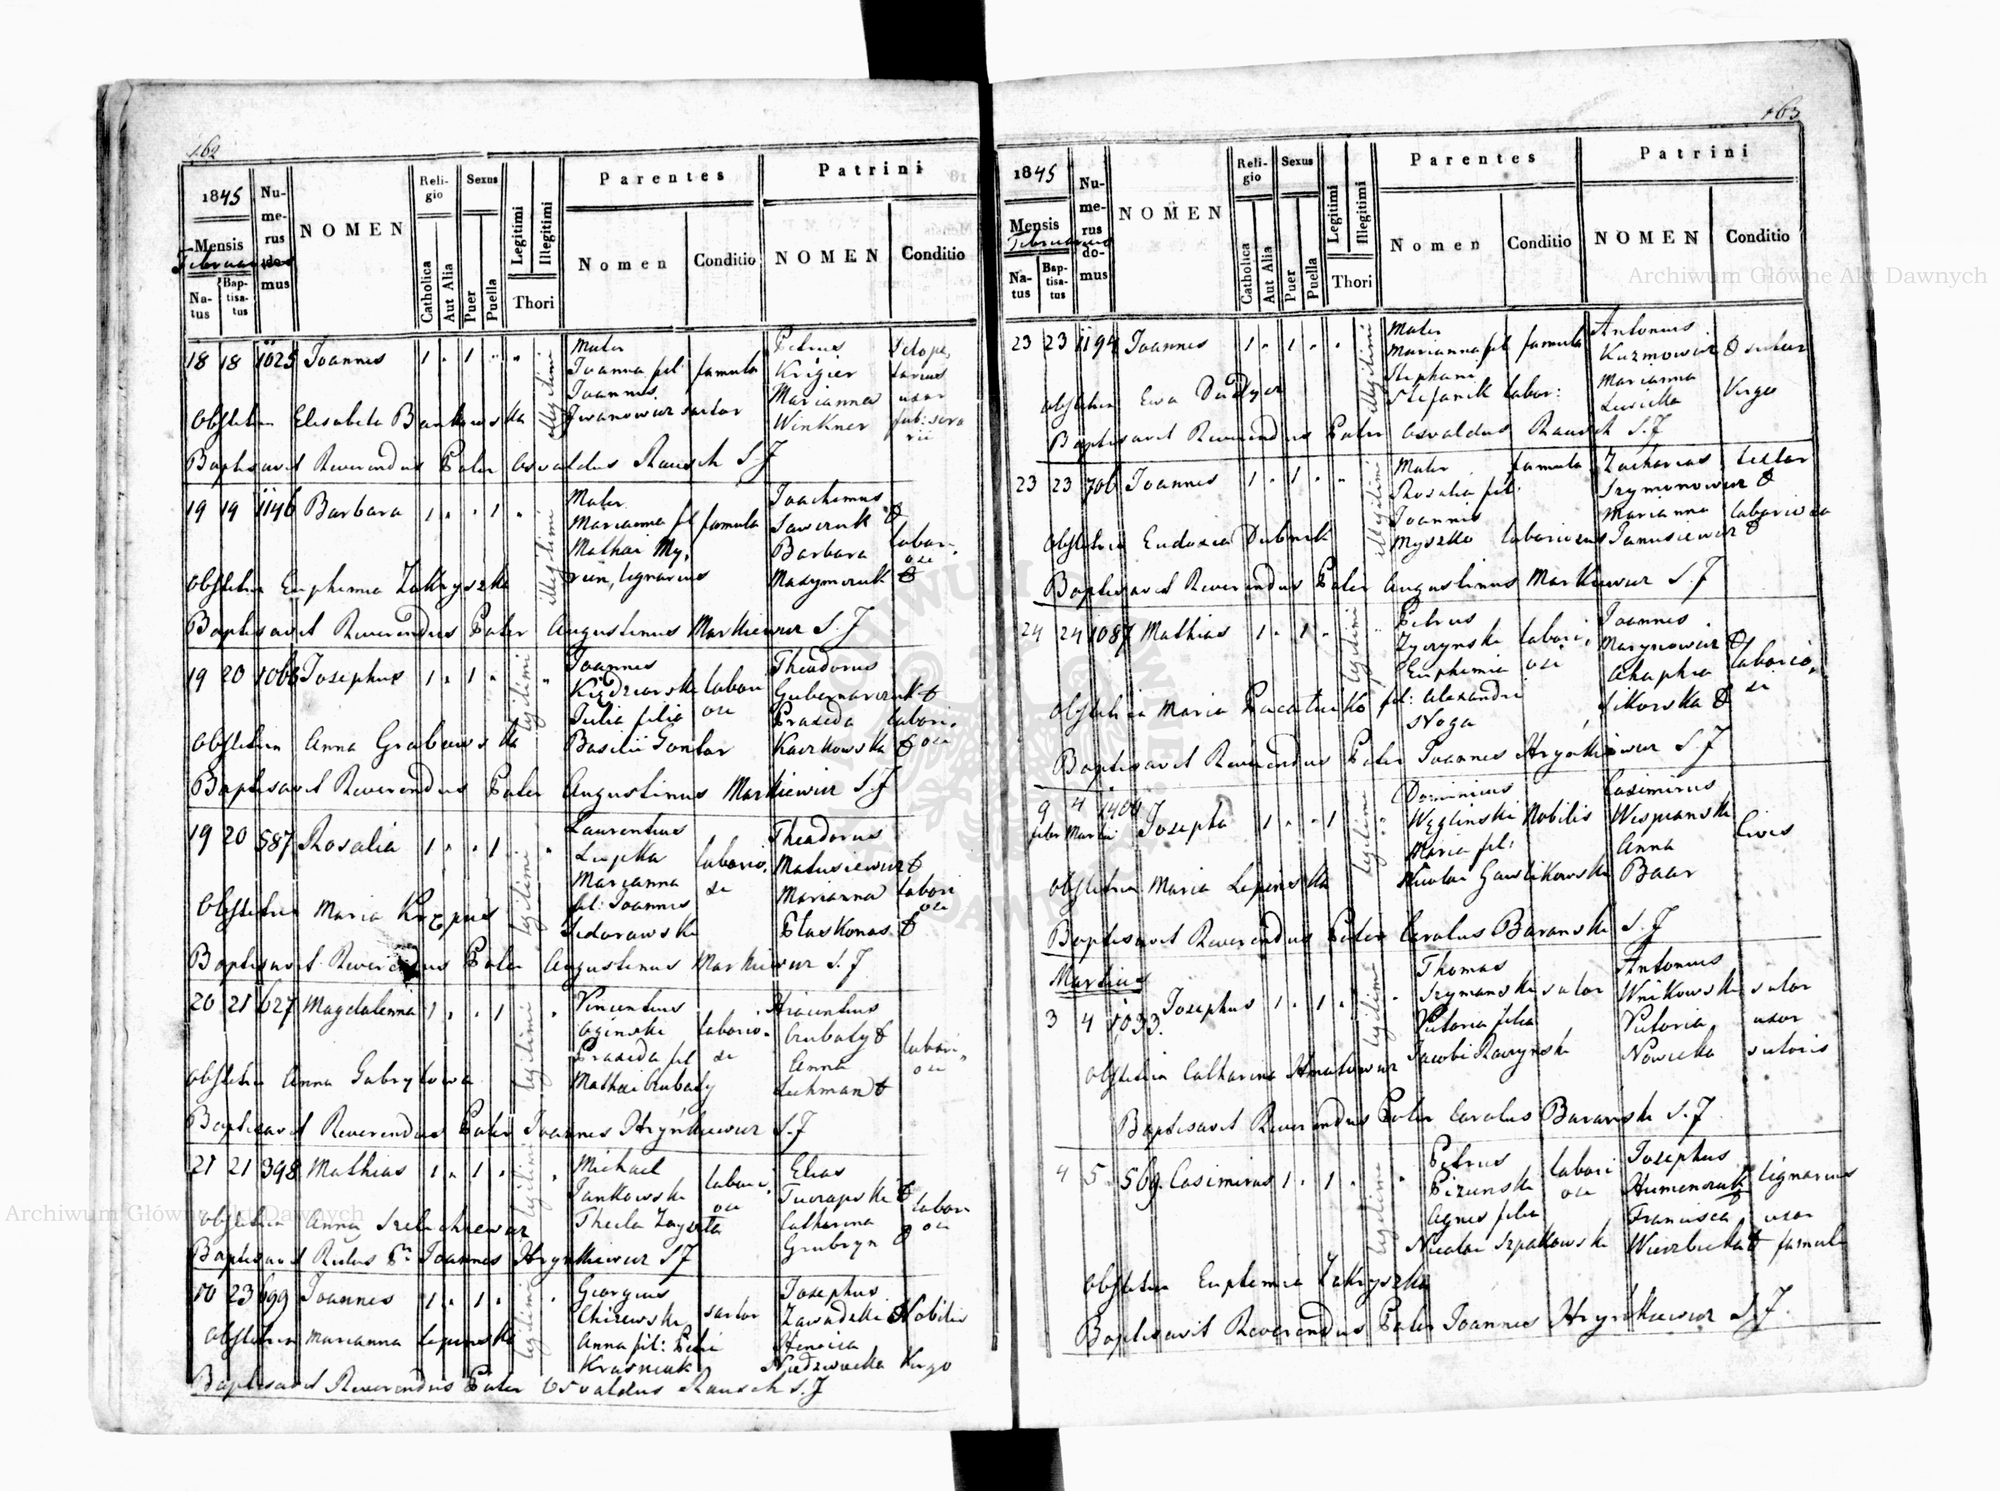 162
1845
Mensis
Februarius
Natus
Baptisatus
Numerus domus
NOMEN
Religio
Catholica
Aut Alia
Sexus
Puer
Puella
Legitimi
Illegitimi
Thori
Parentes
Nomen
Conditio
Patrini
NOMEN
Conditio
18 18 1025 Joannes 1 " 1 " " illegitimi Mater Petrus
Joanna fil: famula Krigier
Joannis Marianna uxor
Obstetrix Elisabeta Bankowska Iwanowicz sartor Winkner
Baptisavit Reverendus Pater Osvaldus Rausch S.J
19 19 1146 Barbara 1 " " 1 " illegitimi Mater Joachimus
Marianna fil famula Sawczuk &
Mathai My, Barbara labori,
lignarius osi
Obstetrix Euphemia Zakryszka
Baptisavit Reverendus Pater Augustinus Markiewicz S.J
19 20 1066 Josephus 1 " 1 " legitimi " Joannes Theodorus
labori Gubernarczuk &
Julia filia osi Praxeda labori,
Obstetrix Anna Grabowska Basilii Gontar Kaczkowska & osi
Baptisavit Reverendus Pater Augustinus Markiewicz S.J
19 20 587 Rosalia 1 " " 1 legitimi " Laurentius Theodorus
Liupka laborio, Matusiewicz &
Marianna si Marianna labori
Obstetrix Maria fil: Joannis osi
Sidorawski Ptaskonas &
Baptisavit Reverendus Pater Augustinus Markiewicz S.J
20 21 627 Magdalenna 1 " " 1 legitimi " Vincentius Hiacinthus
Oginski laborio, Grubaty &
Praxeda fil si Anna labori,
Obstetrix Anna Gabrylowa Mathai Grubaty Lichman & osi
Baptisavit Reverendus Pater Joannes Hrynkiewicz S.J
21 21 398 Mathias 1 " 1 " legitimi " Michael Elias
Jankowski labori, Turzapski &
Obstetrix Anna Thecla osi Catharina labori
Grubryn & osi
Baptisavit Rndus Pr Joannes Hrynkiewicz S.J
10 23 699 Joannes 1 " 1 " legitimi " Georgius Josephus
Chizewski sartor Zawadzki & Nobilis
Obstetrix Marianna Lepinska Anna fil: Petri
Krasniuk Niedzwiecka Virgo
Baptisavit Reverendus Pater Osvaldus Rausch S.J
163
1845
Mensis
Februarius
Natus
Baptisatus
Numerus domus
NOMEN
Religio
Catholica
Aut Alia
Sexus
Puer
Puella
Legitimi
Illegitimi
Thori
Parentes
Nomen
Conditio
Patrini
NOMEN
Conditio
23 23 1194 Joannes 1 " 1 " " illegitimi Mater Antonius
Marianna fil famula Kuzmowicz & sutor
Stephani Marianna
Obstetrix Ewa Dudycz Stefanik labor: Virgo
Baptisavit Reverendus Pater Osvaldus Rausch S.J
23 23 706 Joannes 1 " 1 " " illegitimi Mater famula Zacharias textor
Rosalia fil: Szymonowicz &
Joannis Marianna
Obstetrix Eudoxia Dubnik Myszko laboriosus Janusiewicz &
Baptisavit Reverendus Pater Augustinus Markiewicz S.J
24 24 1087 Mathias 1 " 1 " legitimi " Petrus Joannes
Zyczynski labori, &
Euphemia osi Ahaphia laborio,
Obstetrix Maria fil: Alexandri Sikorska & si
Noga
Baptisavit Reverendus Pater Joannes Hrynkiewicz S.J
9 4 1400 Josepha 1 " " 1 legitimi " Dominicus Casimirus
febr Martii Węglinski Nobilis Wispianski
Maria fil: Anna Cives
Obstetrix Maria Lepinska Nicolai Gawlikowski Baar
Baptisavit Reverendus Pater Carolus Baranski S.J
Martius
3 4 1033 Josephus 1 " 1 " legitimi " Thomas Antonius
Szymanski sutor Wnikowski sutor
Victoria filia Victoria uxor
Obstetrix Catharina Hnatowicz Jacobi Raczynski Nowicka sutoris
Baptisavit Reverendus Pater Carolus Baranski S.J
4 5 569 Casimirus 1 " 1 " legitimi " Petrus Josephus
Pizunski labori Humenczuk lignarius
Agnes filia osi Francisca uxor
Nicolai Szpakowski Wierzbicka & famuli
Obstetrix Euphemia Zakryszka
Baptisavit Reverendus Pater Joannes Hrynkiewicz S.J
Archiwum Główne Akt Dawnych
Archiwum Główne Akt Dawnych